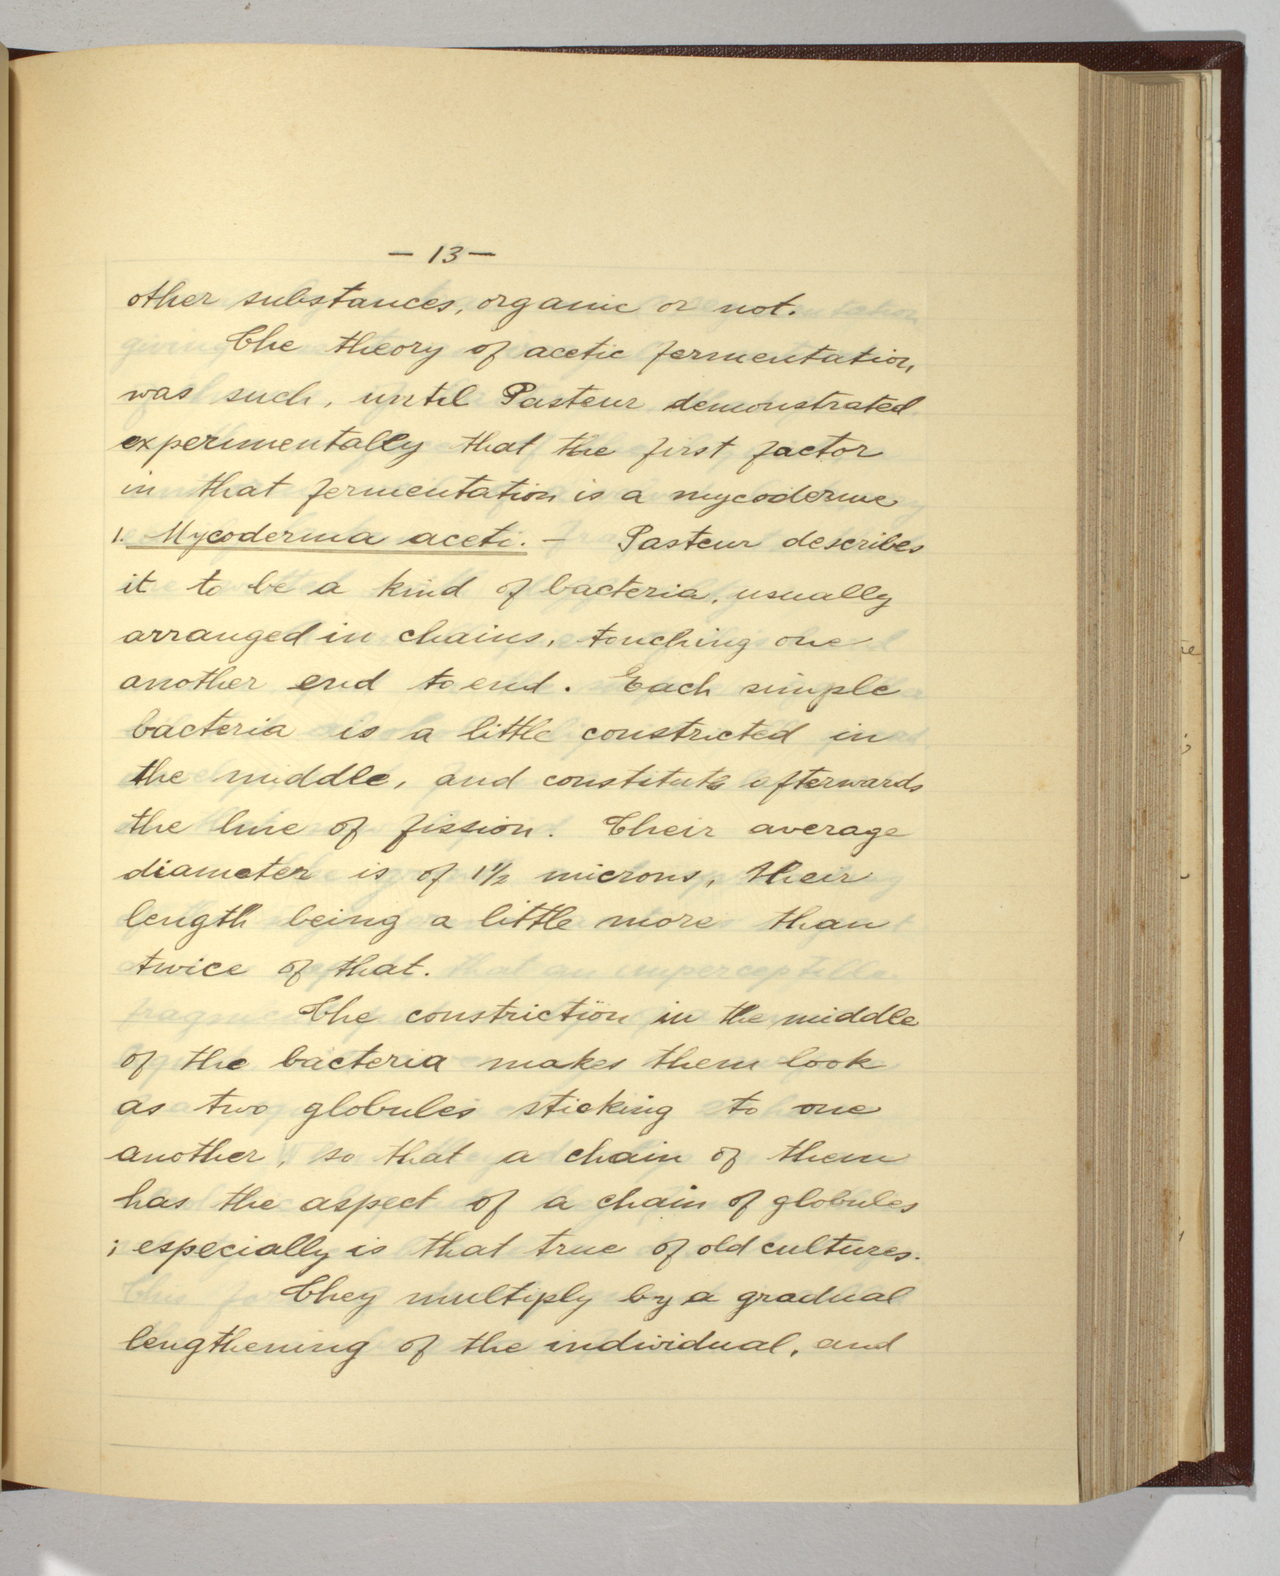 — 13 —
other substances, organic or not.
The theory of acetic fermentation,
was such, until Pasteur demonstrated
experimentally that the first factor
in that fermentation is a mycoderme
1. Mycoderma aceti. — Pasteur describes
it to be a kind of bacteria, usually
arranged in chains, touching one
another end to end. Each simple
bacteria is a little constricted in
the middle, and constitute afterwards
the line of fission. Their average
diameter is of 1½ microns, their
length being a little more than
twice of that.
The constriction in the middle
of the bacteria makes them look
as two globules sticking to one
another, so that a chain of them
has the aspect of a chain of globules
; especially is that true of old cultures.
They multiply by a gradual
lengthening of the individual, and